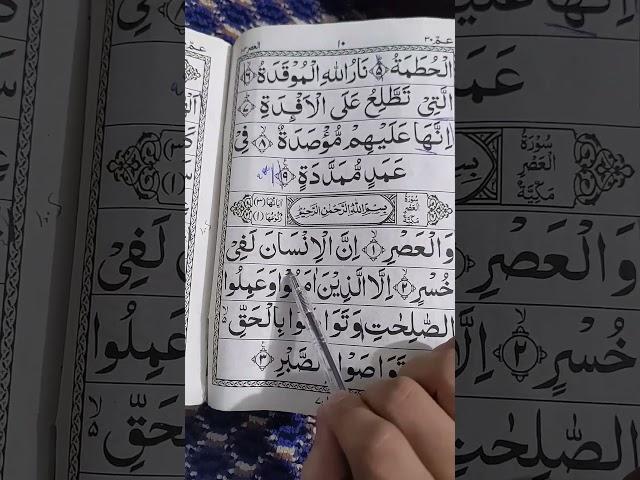 عمّ ٣٠
١٠
العصر ١٠٣
الْحُطَمَةُ ﴿٥﴾ نَارُ اللّٰهِ الْمُوْقَدَةُ ﴿٦﴾
الَّتِىْ تَطَّلِعُ عَلَى الْاَفْـِٕدَةِ ﴿٧﴾
اِنَّهَا عَلَيْهِمْ مُّؤْصَدَةٌ ﴿٨﴾ فِىْ
عَمَدٍ مُّمَدَّدَةٍ ﴿٩﴾
سُوْرَةُ الْعَصْرِ مَكِّيَّةٌ
بِسْمِ اللّٰهِ الرَّحْمٰنِ الرَّحِيْمِ
اٰيَاتُهَا (٣) رُكُوْعُهَا (١)
وَالْعَصْرِ ﴿١﴾ اِنَّ الْاِنْسَانَ لَفِىْ
خُسْرٍ ﴿٢﴾ اِلَّا الَّذِيْنَ اٰمَنُوْا وَعَمِلُوا
الصّٰلِحٰتِ وَتَوَاصَوْا بِالْحَقِّ
وَتَوَاصَوْا بِالصَّبْرِ ﴿٣﴾